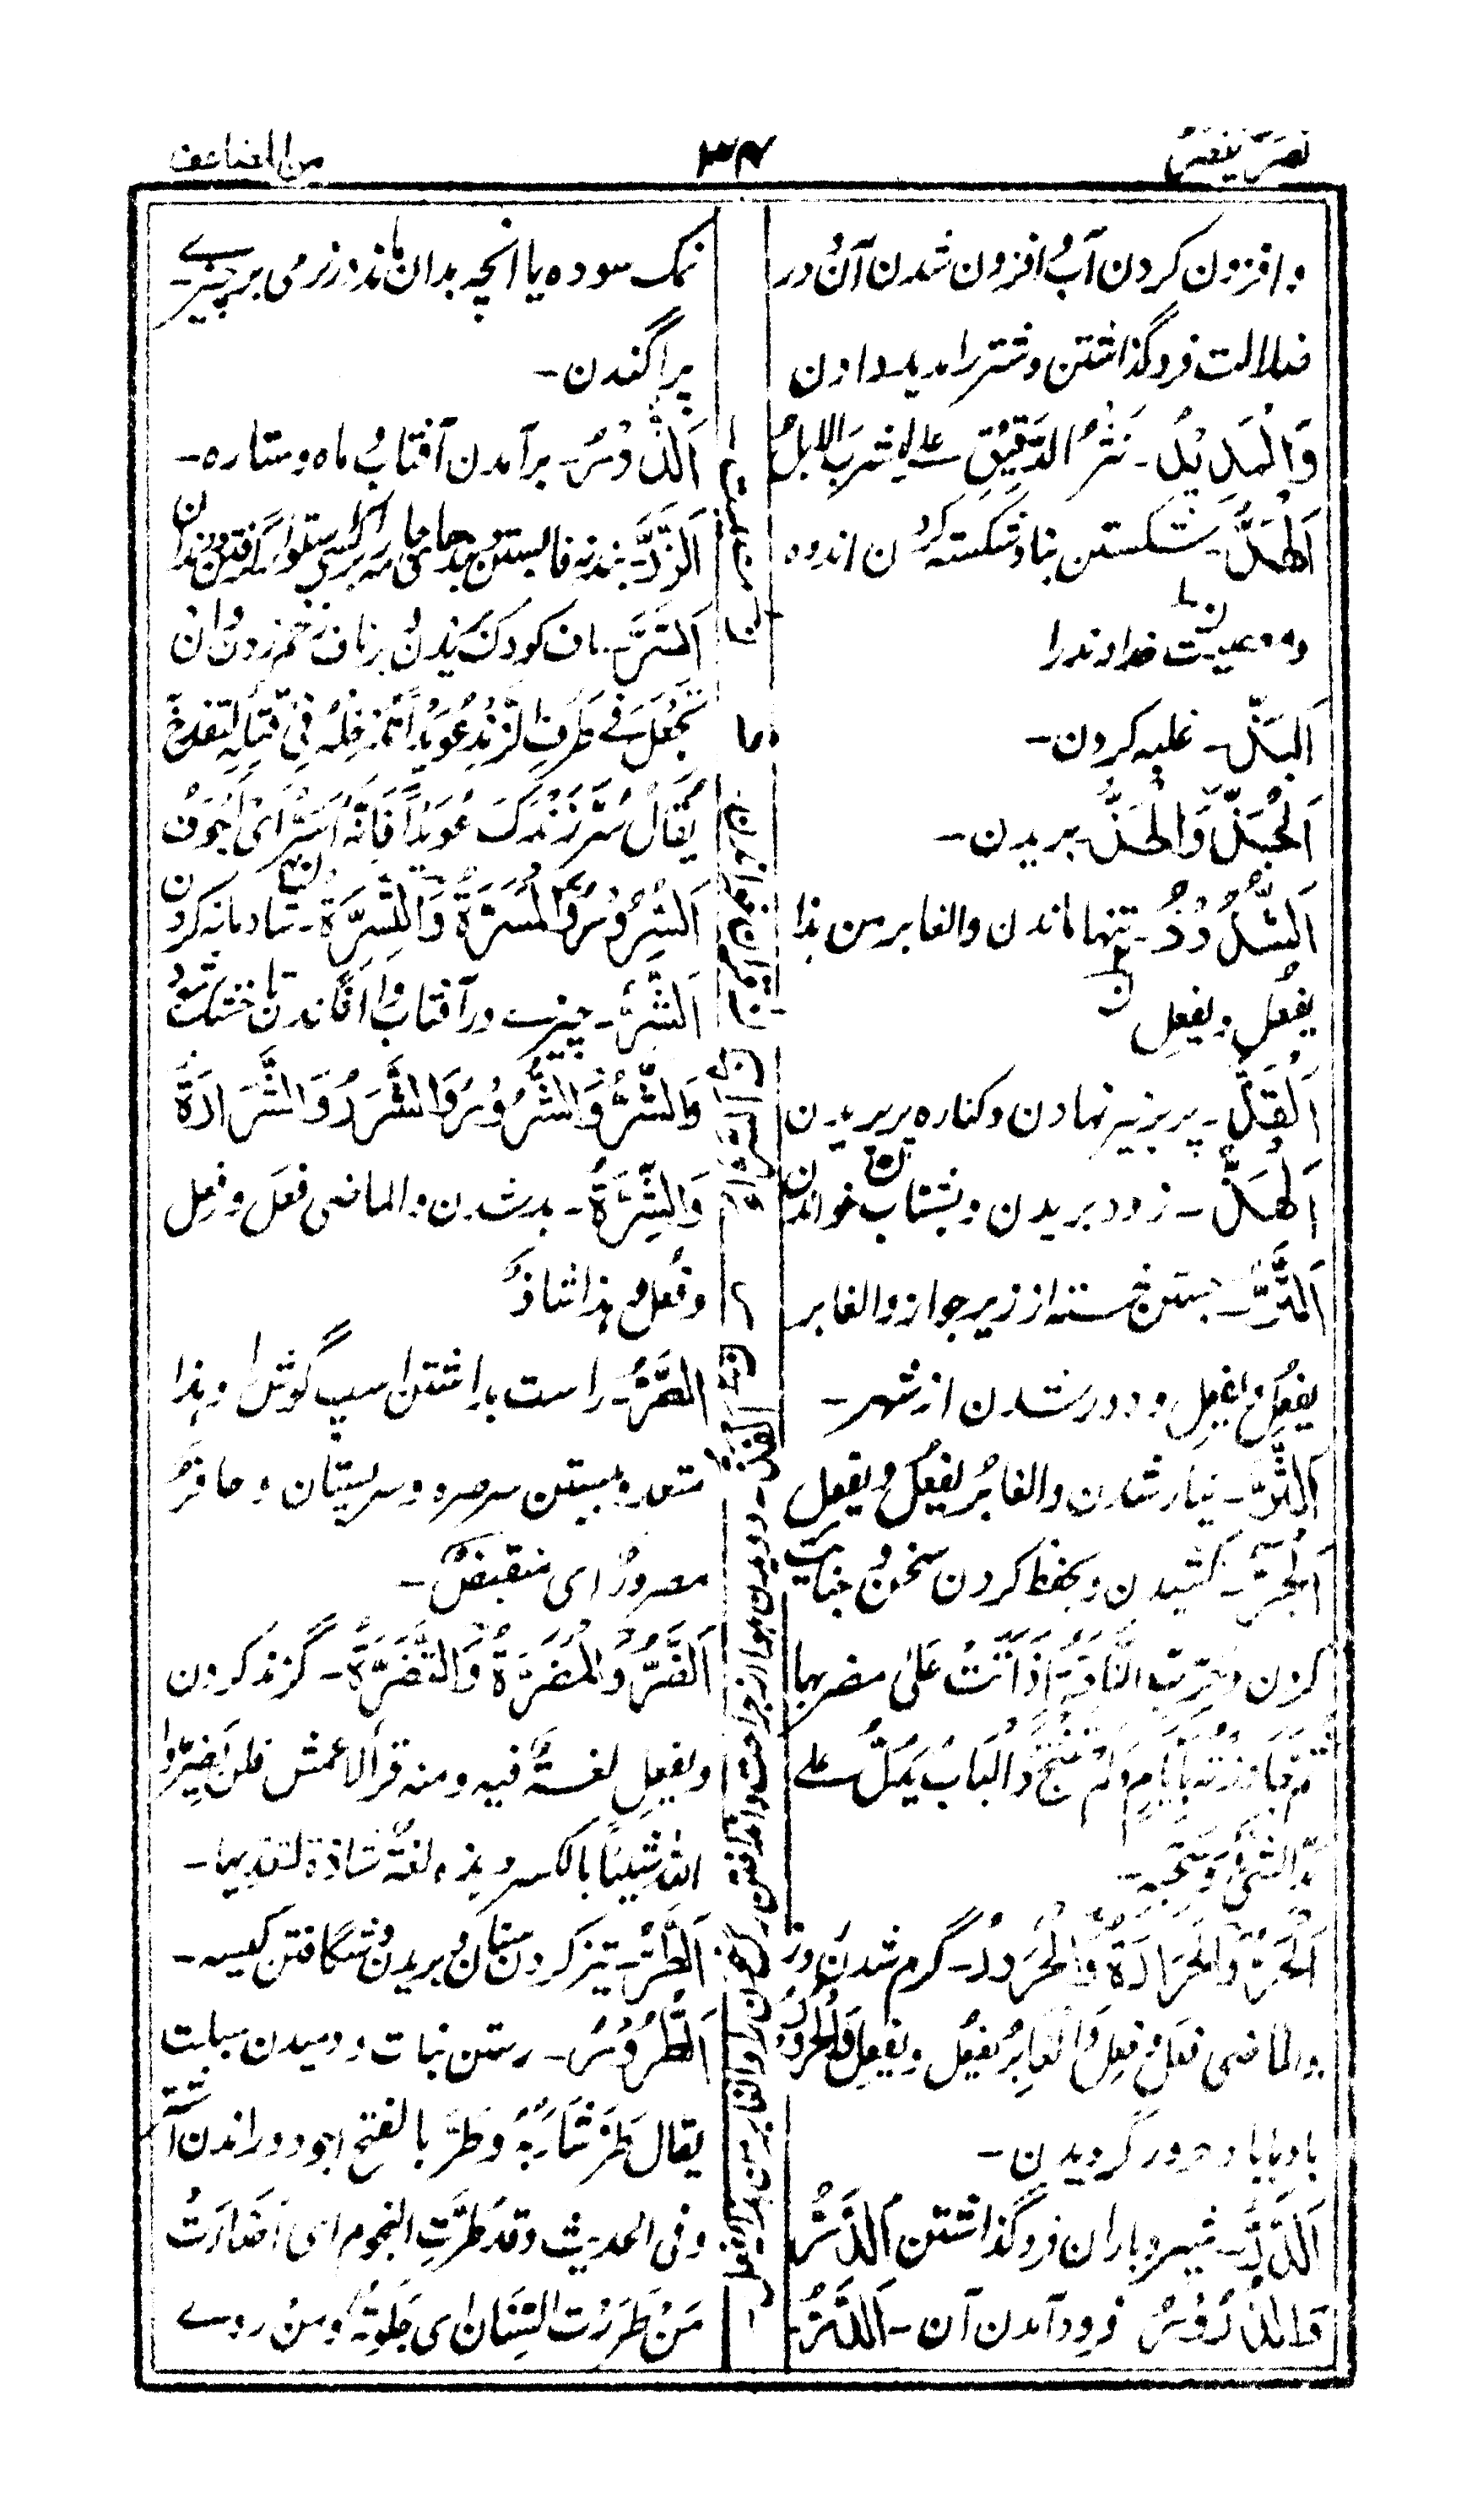 نَصَرَ يَنْصُرُ
۳۴
من المضاعف
و افزون کردن آب و افزون شدن آن و در
ضلالت فروگذاشتن و شتر را مدید دادن
وَالْمَدِیْدُ۔ نَثْرُ الدَّقِیْقِ علی الماء لیشرب الابل
اَلْهَدُّ۔ شکستن بنا و شکسته کردن اندوه
و مصیبت خداوند را
اَلْبَذُّ۔ غلبه کردن۔
اَلْجَذُّ وَالْحَذُّ۔ بریدن۔
اَلشُّذُوْذُ۔ تنها ماندن والغابر من هذا
یفعُل و یفعِل
اَلْقَذُّ۔ پر بر تیر نهادن و کناره پر بریدن
اَلْهَذُّ۔ زود بریدن و بشتاب خواندن
اَلتَّرُّ۔ جستن خسته از زیر جواز والغابر
یفعُل و یفعِل و دور شدن از شهر۔
اَلثَّرُّ۔ بسیار شدن والغابرُ یفعُل و یفعِل
اَلْجَرُّ۔ کشیدن و بخفظ کردن سخن و جنایت
کردن و جَرَّتِ النَّاقَةُ اِذَا اَتَتْ عَلٰی مضربها
ثُمَّ جَاوَزَتْهُ بِاَیَّامٍ وَلَمْ تُنْتَجْ وَالْبَابُ یَدُلُّ علی
مَدِّ الشَّیْءِ وَسَحْبِهِ۔
اَلْحَرُّ وَالْحَرَارَةُ وَالْحُرُورُ۔ گرم شدن روز
والماضی فعَل و فعِل وَالْغَابِرُ یفعُل و یفعِل وَالْحُرُوْرُ
باد با باد حرور گردیدن۔
اَلدَّرُّ۔ شیر و باران فروگذاشتن اَلدَّرُّ
وَالدُّرُوْرُ فرود آمدن آن۔ اَلذَّرُّ۔
نمک سوده یا انچه بدان ماند در نرمی بر چیزے
پراگندن۔
اَلذُّرُوْرُ۔ برآمدن آفتاب و ماه و ستاره۔
اَلسَّرُّ۔ ناف کودک بریدن و بر ناف زخم زدن و ان
تَجْعَلَ فِی طَرَفِ الزَّنْدِ عُوَیْدًا تُدْخِلُهُ فِی قَلْبِهِ لِتَقْدَحَ
یُقَالُ سُرَّ زَنْدَکَ عُوَیْدًا فَاِنَّهُ اَسَرُّ اَیْ اَجْوَفُ
اَلسُّرُوْرُ وَالْمَسَرَّةُ وَالتَّسِرَّةُ۔ شادمانه کردن
اَلشَّرُّ۔ چیزے در آفتاب وا افگندن تا خشک شود
وَالشَّرُّ وَالشُّرُوْرُ وَالشَّرَرُ وَالشَّرَارَةُ
وَالشِّرَّةُ۔ بد شدن والماضی فعَل و فعِل
و فعُل و هذا شاذٌ
اَلصَّرُّ۔ راست باداشتن اسپ گوش را و هذا
متعد و ببستن سر صره و سر پستان و حافرٌ
مصرورٌ ای منقبضٌ۔
اَلضَّرُّ وَالْمَضَرَّةُ وَالتَّضَرَّةُ۔ گزند کردن
و یفعِل لغةٌ فیه و منه قرأ الاعمش فلن یضِرّوا
الله شیئًا بالکسر و هذه لغةٌ شاذة لتعدیها۔
اَلطَّرُّ۔ تیز کردن سنان و بریدن و شگافتن کیسه۔
اَلطُّرُوْرُ۔ رستن نبات و دمیدن سبلت
یقال طُرَّ شَارِبُهُ وَطَرَّ بالفتح اجود و راندن
و فی الحدیث و قد طُرَّتِ النجوم ای اَضَاءَتْ
مِنْ طَرَرْتُ السِّنَان ای جَلَوْتُهُ و من روے